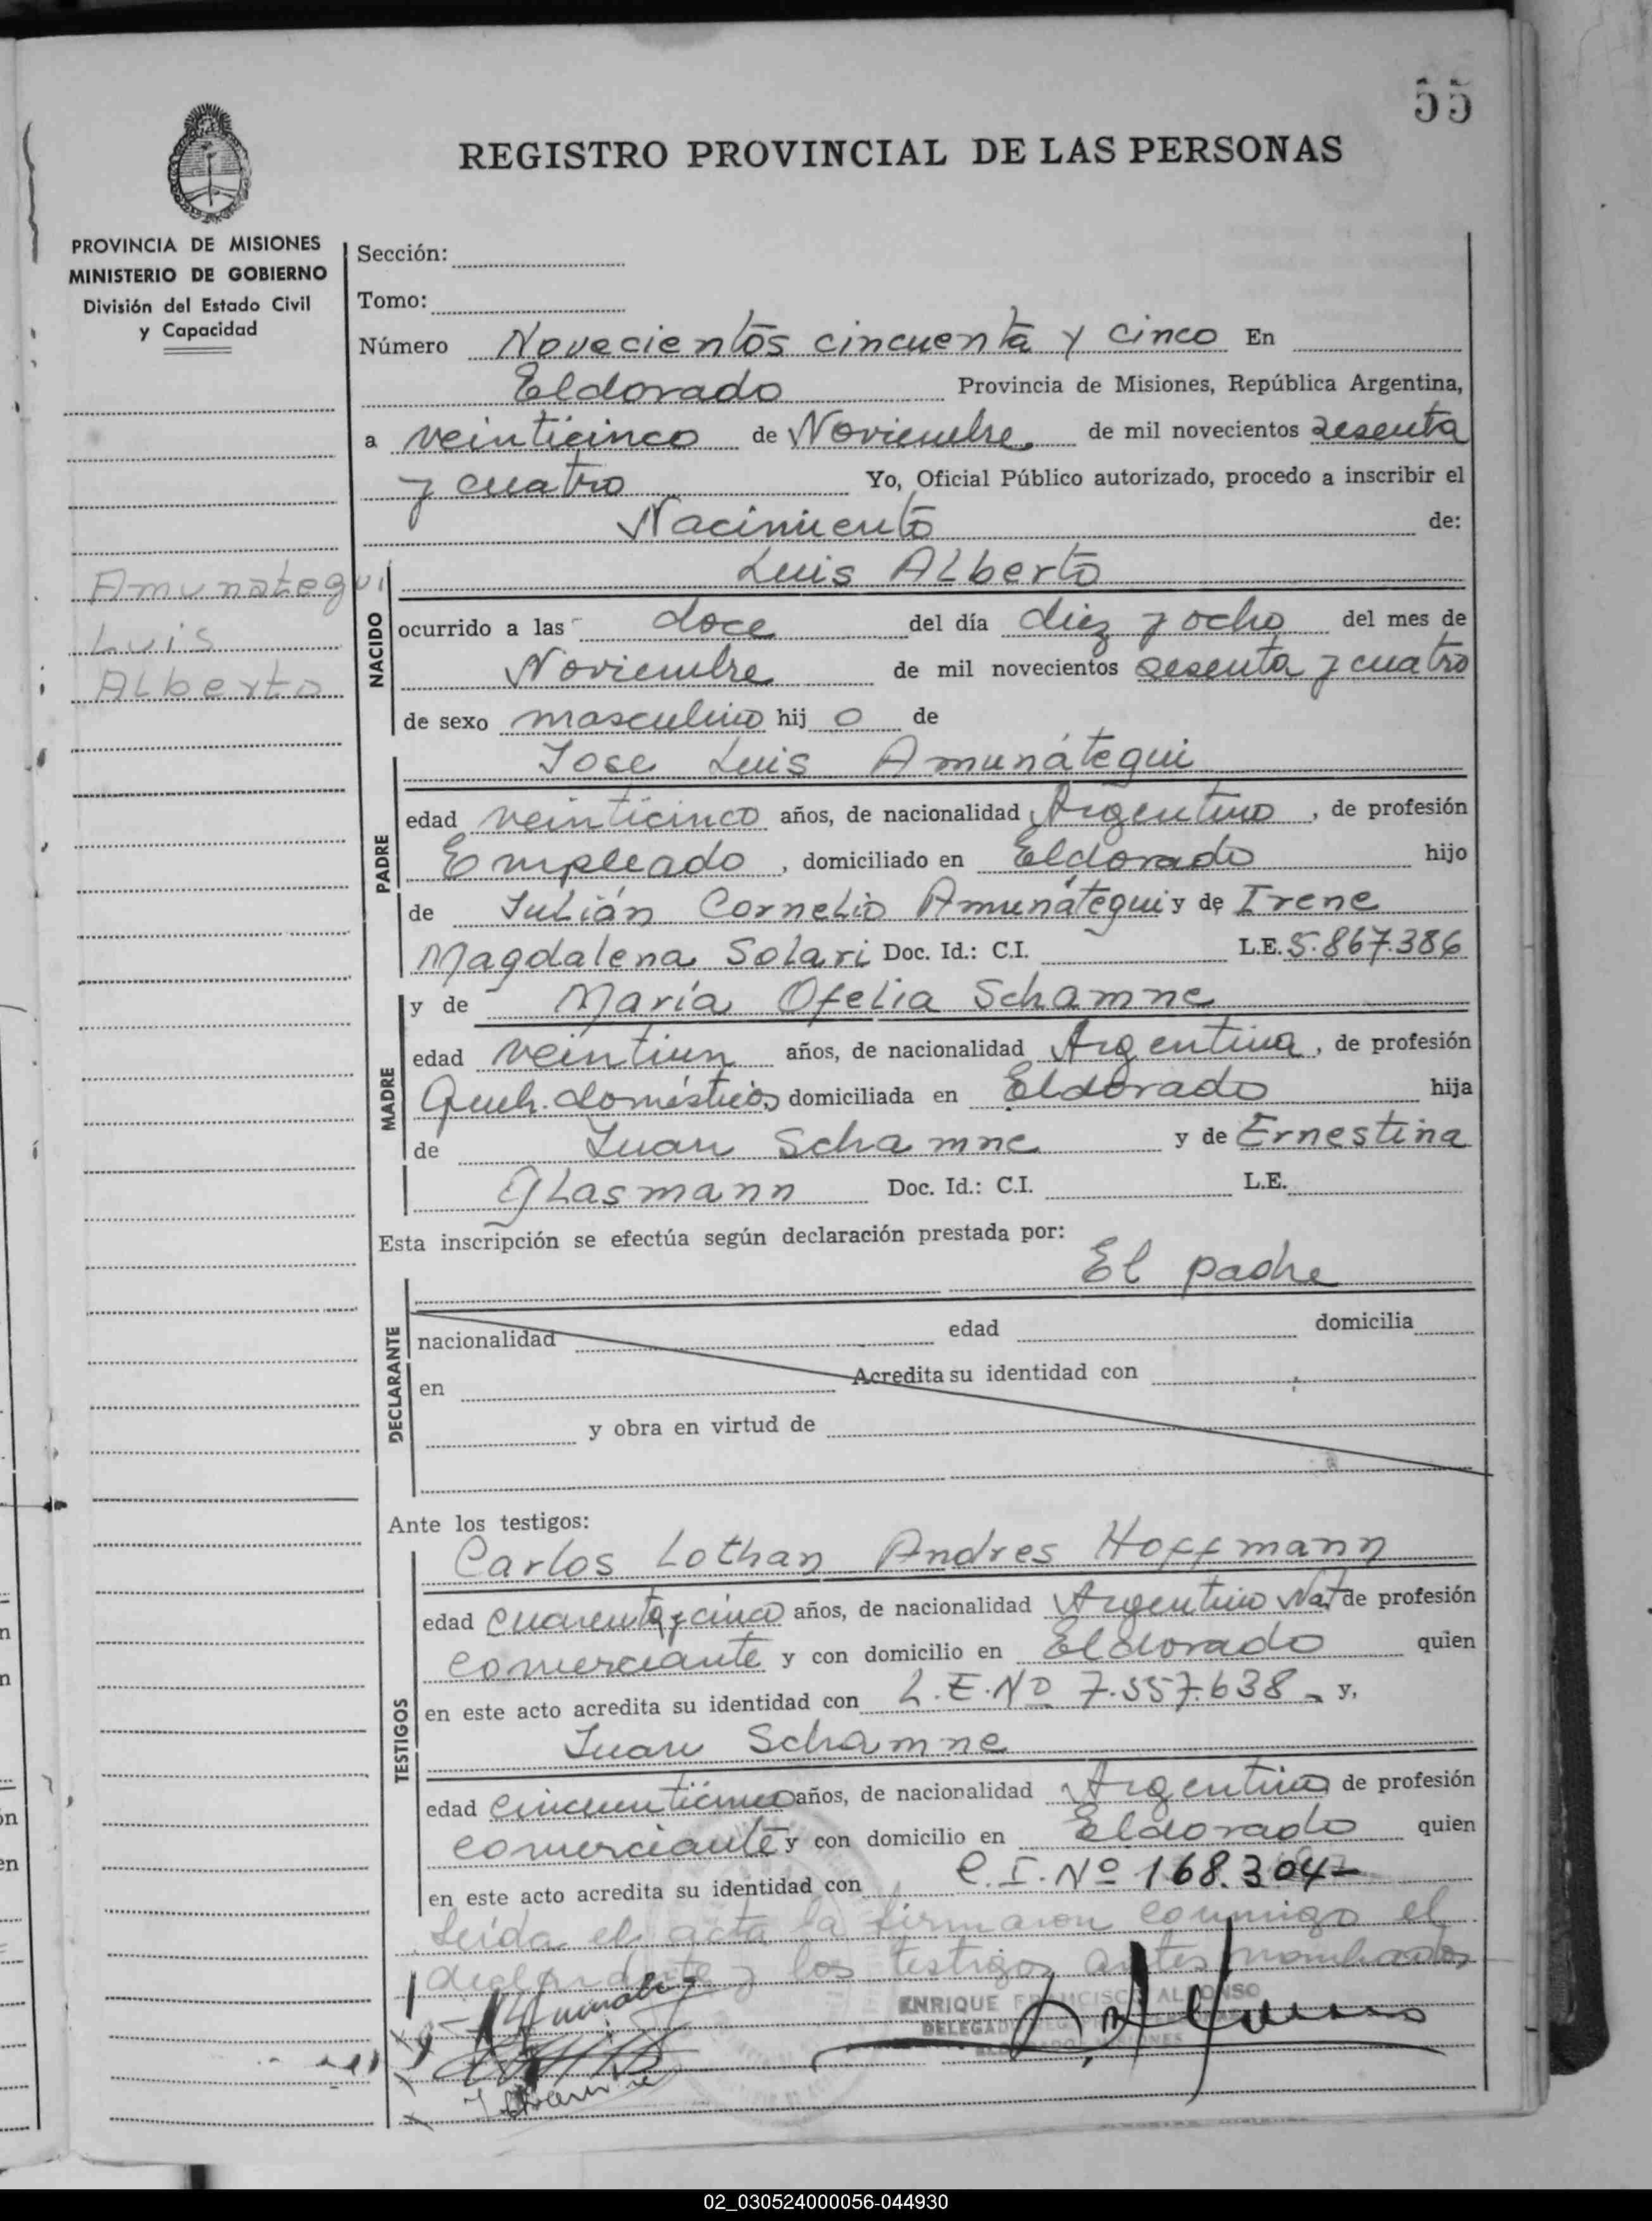 55
REGISTRO PROVINCIAL DE LAS PERSONAS
PROVINCIA DE MISIONES
MINISTERIO DE GOBIERNO
División del Estado Civil
y Capacidad
Amunategui
Luis
Alberto
Sección:
Tomo:
Número Novecientos cincuenta y cinco En
Eldorado Provincia de Misiones, República Argentina,
a veinticinco de Noviembre. de mil novecientos sesenta
y cuatro Yo, Oficial Público autorizado, procedo a inscribir el
Nacimiento de:
Luis Alberto
NACIDO
ocurrido a las doce del día diez y ocho del mes de
Noviembre de mil novecientos sesenta y cuatro
de sexo masculino hij o de
Jose Luis Amunátegui
PADRE
edad veinticinco años, de nacionalidad Argentino, de profesión
Empleado, domiciliado en Eldorado hijo
de Julián Cornelio Amunátegui y de Irene
Magdalena Solari Doc. Id.: C.I. L.E. 5.867.386
y de María Ofelia Schamne
MADRE
edad veintiun años, de nacionalidad Argentina, de profesión
Queh. domésticos domiciliada en Eldorado hija
de Juan Schamne y de Ernestina
Glasmann Doc. Id.: C.I. L.E.
Esta inscripción se efectúa según declaración prestada por:
El padre
DECLARANTE
nacionalidad edad domicilia
en Acredita su identidad con
y obra en virtud de
Ante los testigos:
Carlos Lothan Andres Hoffmann
TESTIGOS
edad cuarenta y cinco años, de nacionalidad Argentino Nat. de profesión
comerciante y con domicilio en Eldorado quien
en este acto acredita su identidad con L.E.Nº 7.557.638 - y,
Juan Schamne
edad años, de nacionalidad Argentino de profesión
comerciante y con domicilio en Eldorado quien
en este acto acredita su identidad con C.I.Nº 168.304-
Leída el acta la firmaron conmigo el
declarante y los testigos antes nombrados
ENRIQUE FRANCISCO ALFONSO
02_030524000056-044930